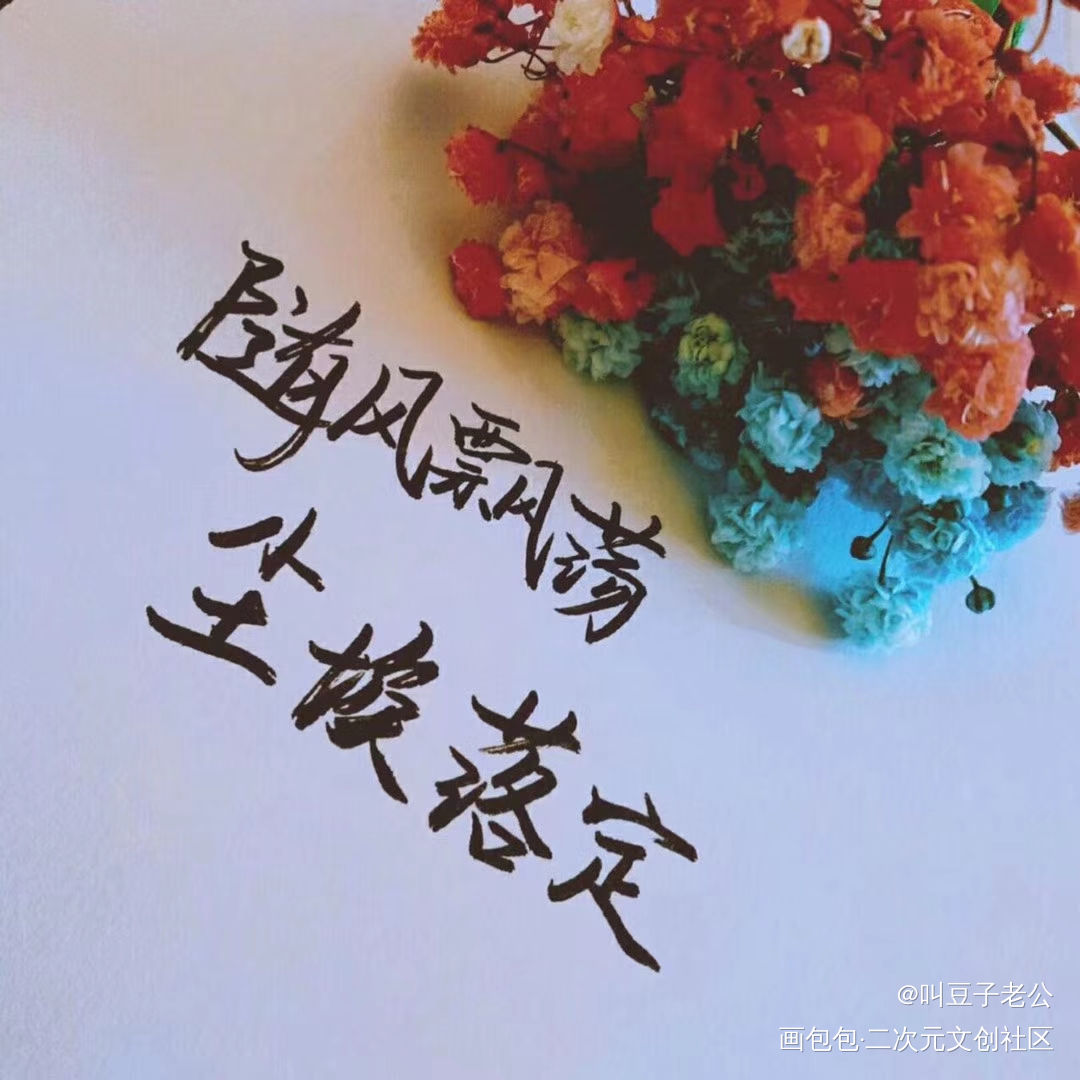 随风飘荡
尘埃落定
@叫豆子老公
画包包·二次元文创社区